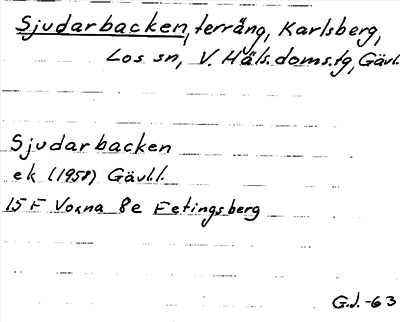 Sjudarbacken, terräng, Karlsberg,
Los sn, V. Häls. doms.tg, Gävl.
Sjudarbacken
ek (1958) Gävl.l.
15 F Voxna 8e Fetingsberg
G.J. -63